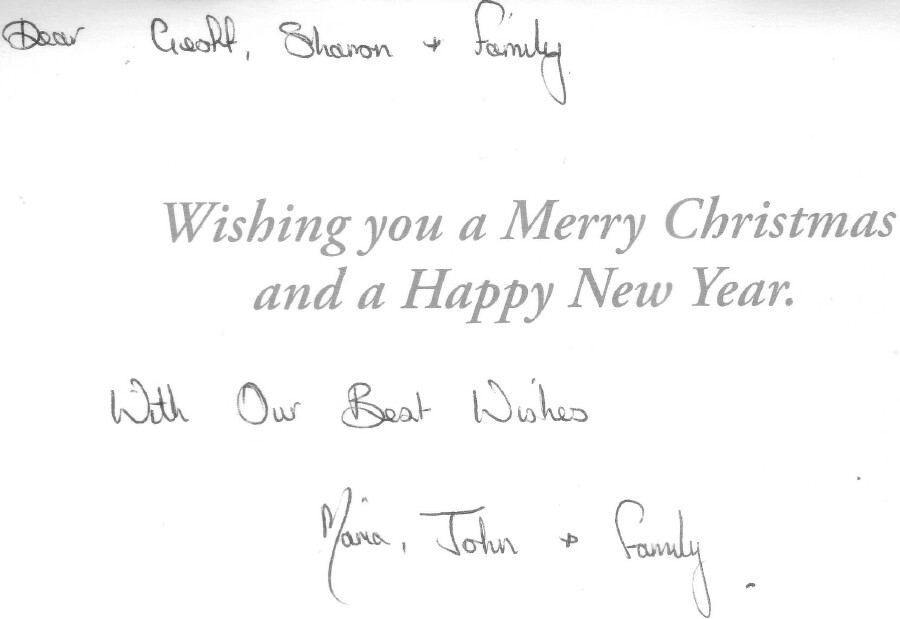 Dear Geoff, Sharon + Family
Wishing you a Merry Christmas
and a Happy New Year.
With Our Best Wishes
Maria, John + Family.